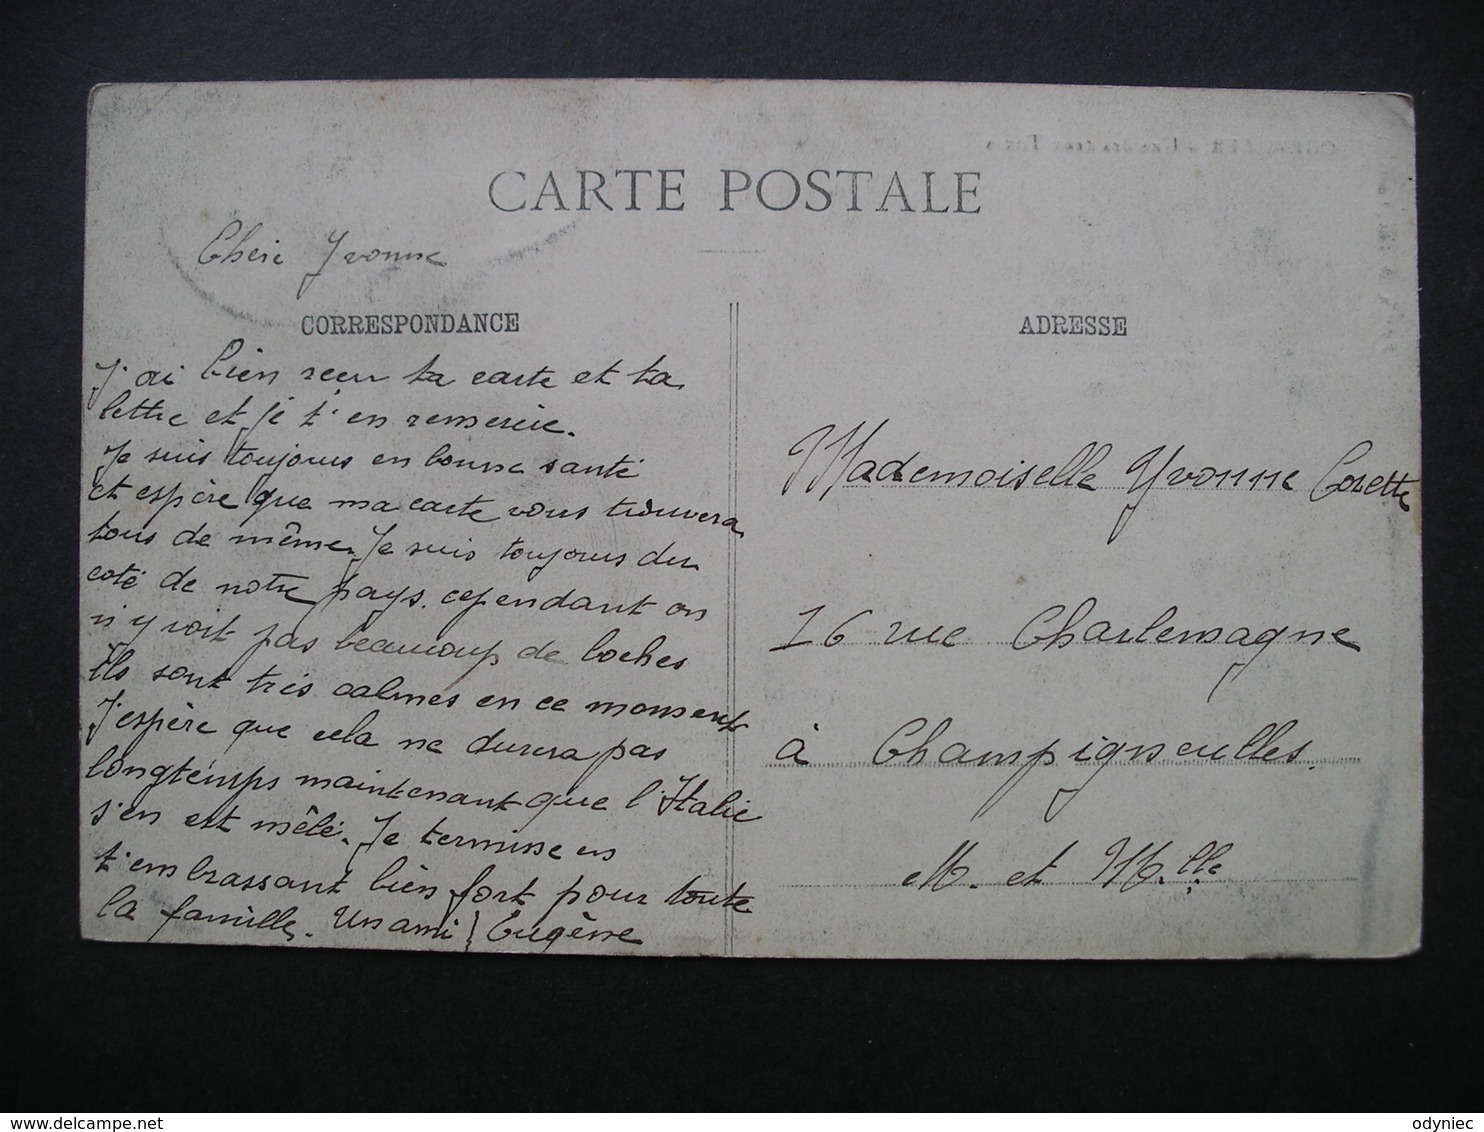 CARTE POSTALE
Chère Yvonne
CORRESPONDANCE
J'ai bien reçu ta carte et ta
lettre et je t'en remercie.
Je suis toujours en bonne santé
et espère que ma carte vous trouvera
tous de même. Je suis toujours du
coté de notre pays. cependant on
n'y voit pas beaucoup de boches
ils sont très calmes en ce moment
J'espère que cela ne durera pas
longtemps maintenant que l'Italie
s'en est mêlé. Je termine en
t'embrassant bien fort pour toute
la famille. Un ami Eugène
ADRESSE
Mademoiselle Yvonne Cosette
16 rue Charlemagne
à Champigneulles.
M. et M.lle
odyniec